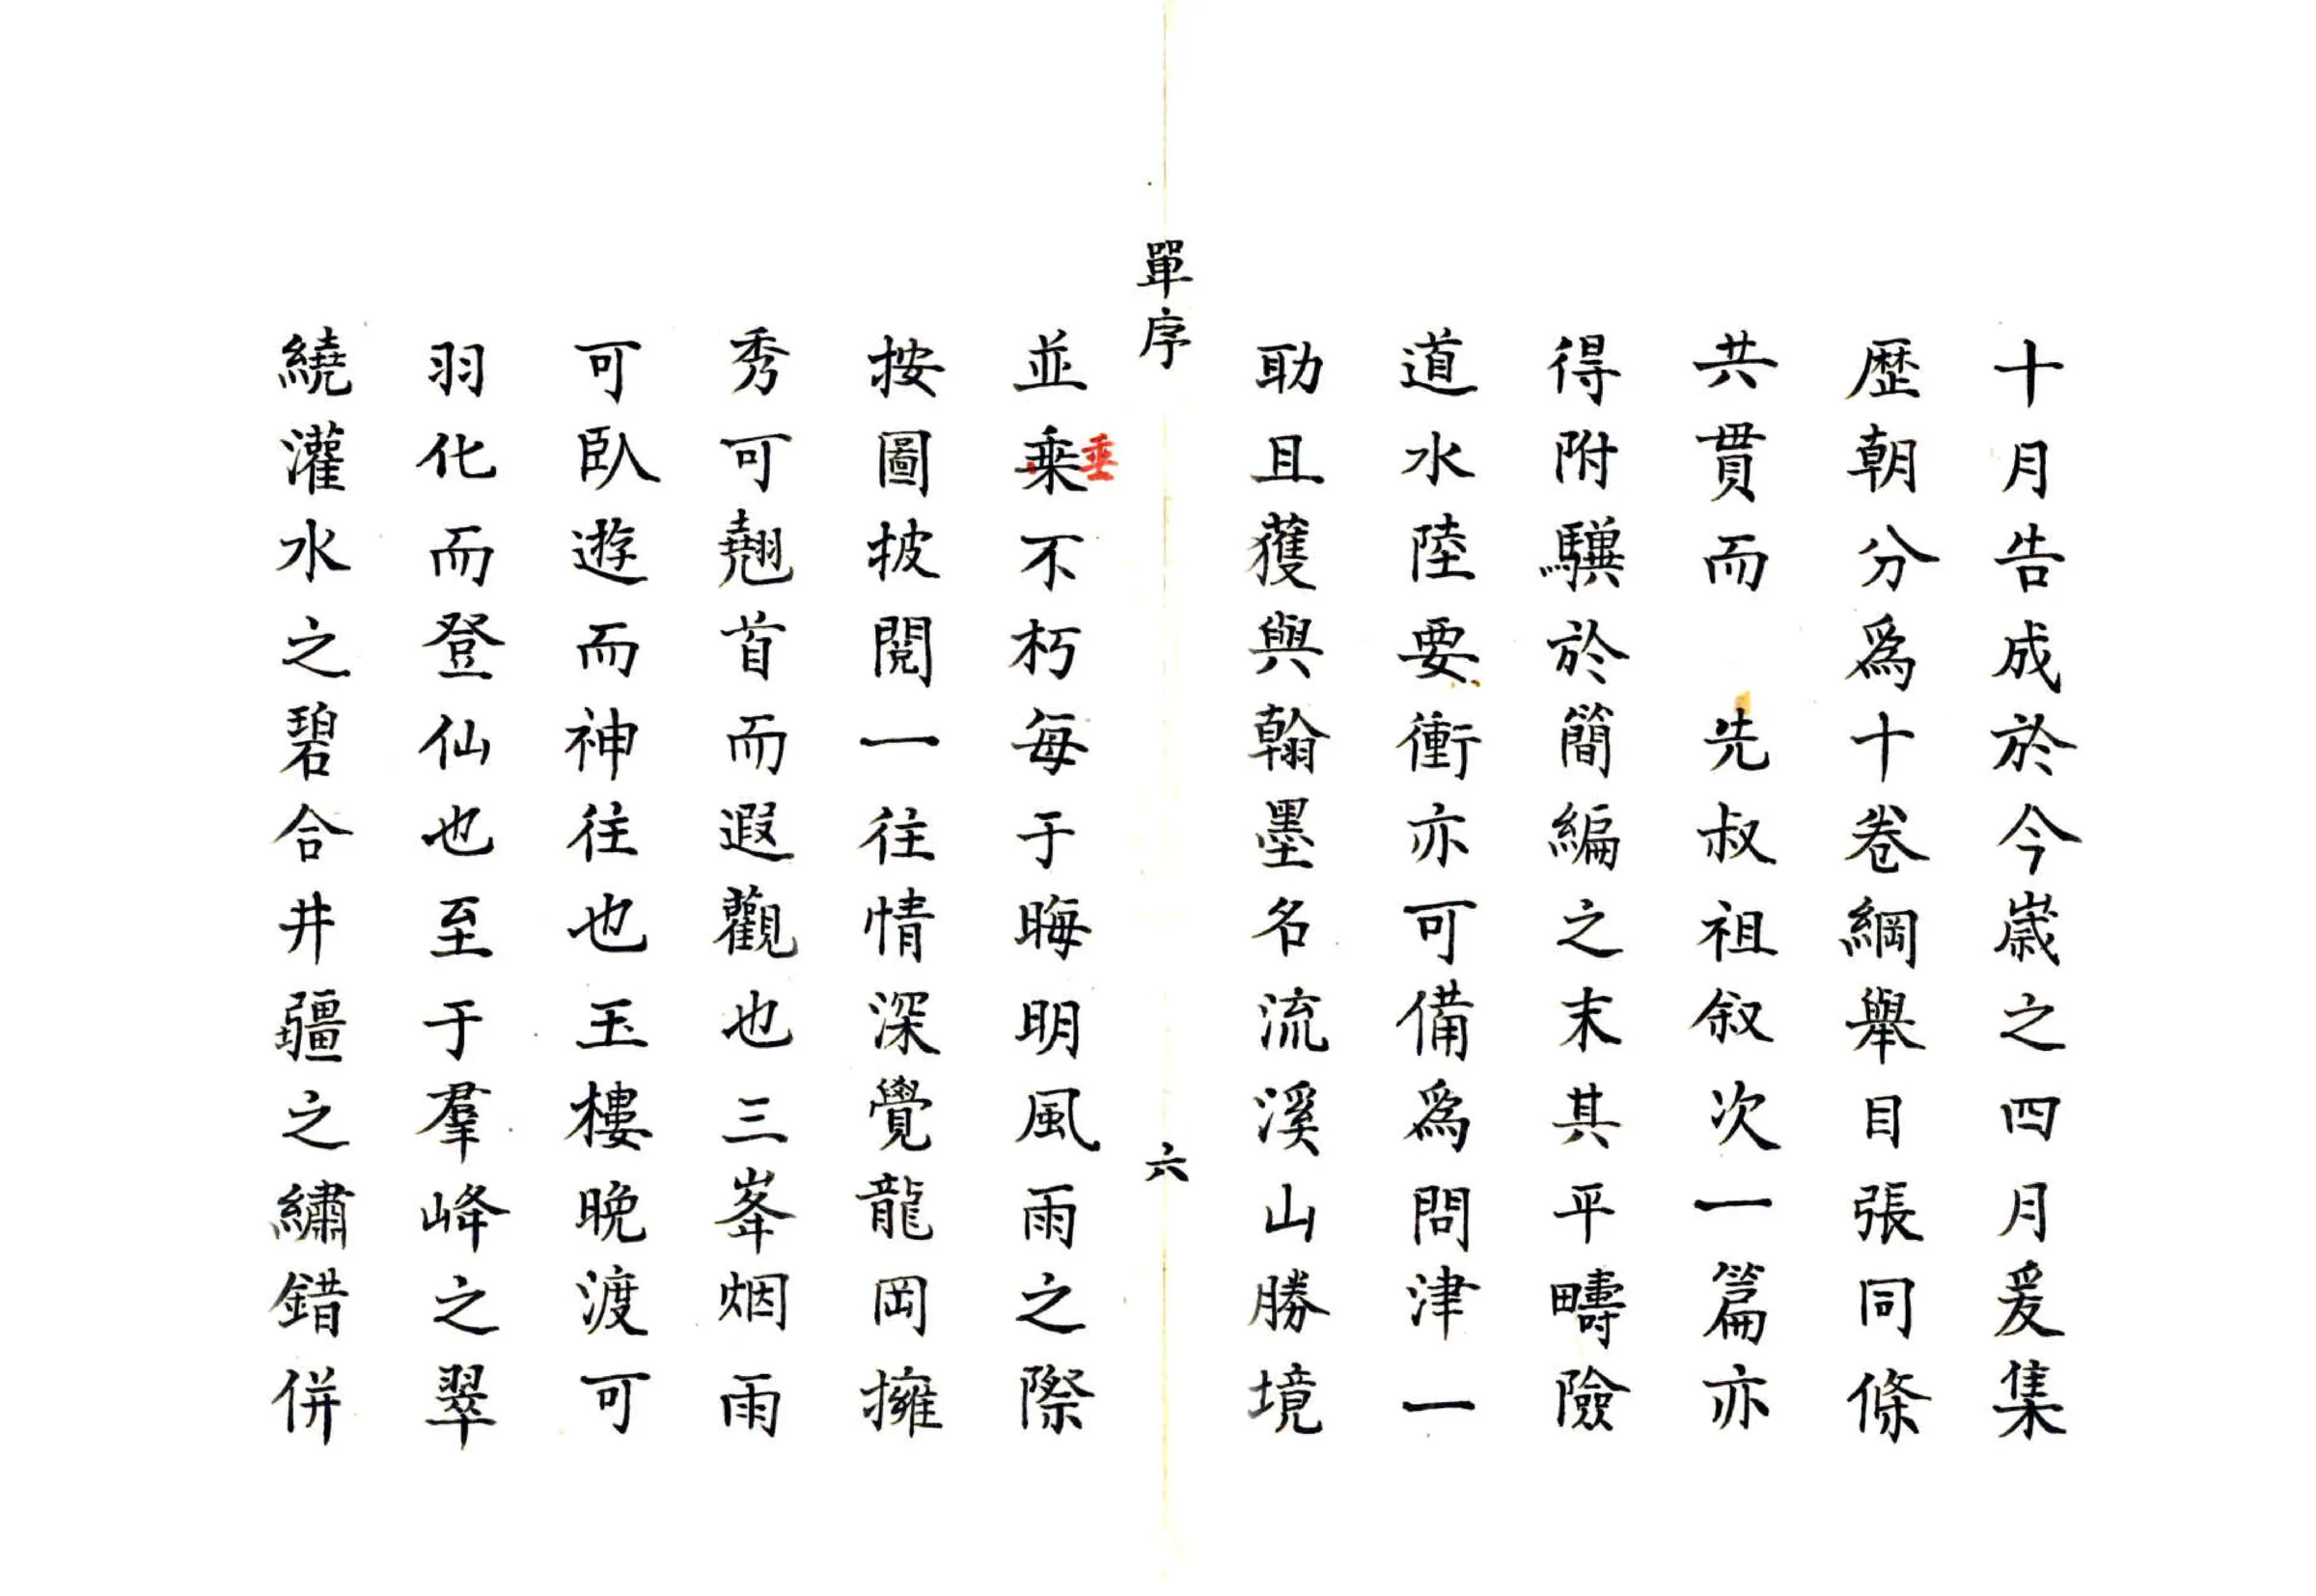 十月告成於今歲之四月爰集
歷朝分爲十卷綱舉目張同條
共貫而　先叔祖叙次一篇亦
得附驥於簡編之末其平疇險
道水陸要衝亦可備爲問津一
助且獲與翰墨名流溪山勝境
單序
六
並乗不朽每于晦明風雨之際
垂
按圖披閱一往情深覺龍岡擁
秀可翹首而遐觀也三峯烟雨
可臥遊而神往也玉樓晚渡可
羽化而登仙也至于羣峰之翠
繞灌水之碧合井疆之繡錯併